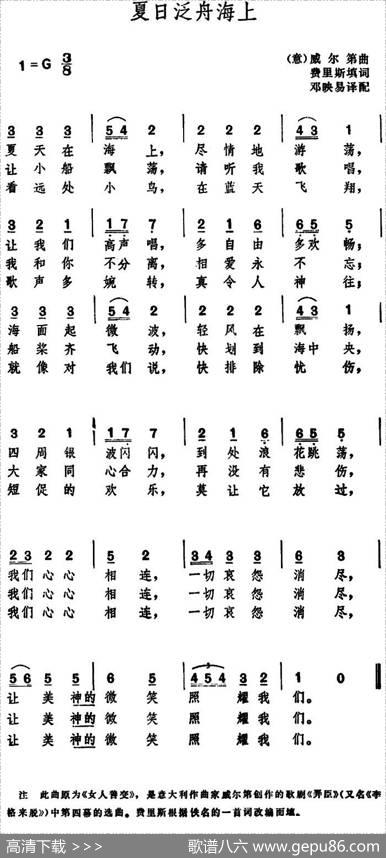 夏日泛舟海上
1=G 3/8
(意)威尔第曲
费里斯填词
邓映易译配
3 3 3 | 5 4 2 | 2 2 2 | 4 3 1 |
夏天在海上,尽情地游荡,
让小船飘荡,请听我歌唱,
看远处小鸟,在蓝天飞翔,
3 2 1 | 1 7 7 | 2 1 6 | 6 5 5 |
让我们高声唱,多自由多欢畅;
我和你不分离,相爱永不忘;
歌声多婉转,真令人神往;
3 3 3 | 5 4 2 | 2 2 2 | 4 3 1 |
海面起微波,轻风在飘扬,
船桨齐飞动,快划到海中央,
就像对我们说,快排除忧伤,
3 2 1 | 1 7 7 | 2 1 6 | 6 5 5 |
四周银波闪闪,到处浪花跳荡,
大家同心合力,再没有悲伤,
短促的欢乐,莫让它放过,
2 3 2 2 | 5 2 | 3 4 3 3 | 6 3 |
我们心心相连,一切哀怨消尽,
我们心心相连,一切哀怨消尽,
我们心心相连,一切哀怨消尽,
5 6 5 5 | 6 5 | 4 5 4 3 2 | 1 0
让美神的微笑照耀我们。
让美神的微笑照耀我们。
让美神的微笑照耀我们。
注 此曲原为《女人善变》,是意大利作曲家威尔第创作的歌剧《弄臣》(又名《李
格来脱》)中第四幕的选曲。费里斯根据佚名的一首词改编而填。
高清下载 >>> 歌谱八六 www.gepu86.com